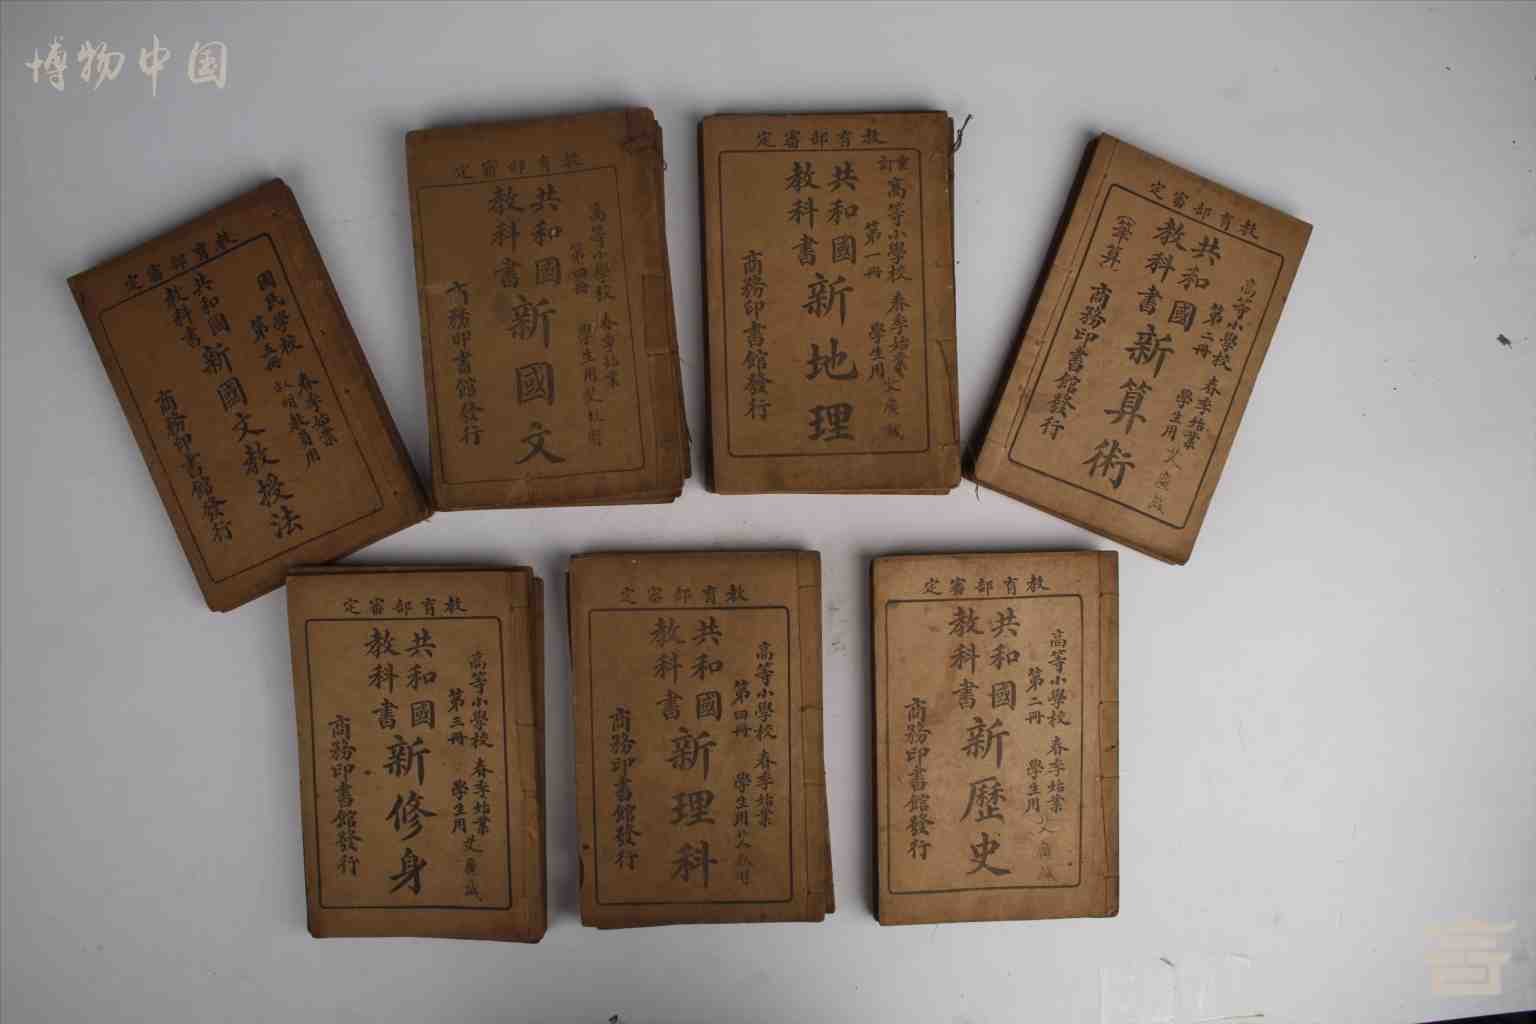 博物中国
教育部審定
國民學校 春季始業
第五冊 教員用
共和國
教科書
新國文教授法
商務印書館發行
教育部審定
高等小學校 春季始業
第四冊 學生用
共和國
教科書
新國文
商務印書館發行
教育部審定
重訂
高等小學校 春季始業
第一冊 學生用
共和國
教科書
新地理
商務印書館發行
教育部審定
高等小學校 春季始業
第二冊 學生用
共和國
教科書
新算術
(筆算)
商務印書館發行
教育部審定
高等小學校 春季始業
第三冊 學生用
共和國
教科書
新修身
商務印書館發行
教育部審定
高等小學校 春季始業
第四冊 學生用
共和國
教科書
新理科
商務印書館發行
教育部審定
高等小學校 春季始業
第二冊 學生用
共和國
教科書
新歷史
商務印書館發行